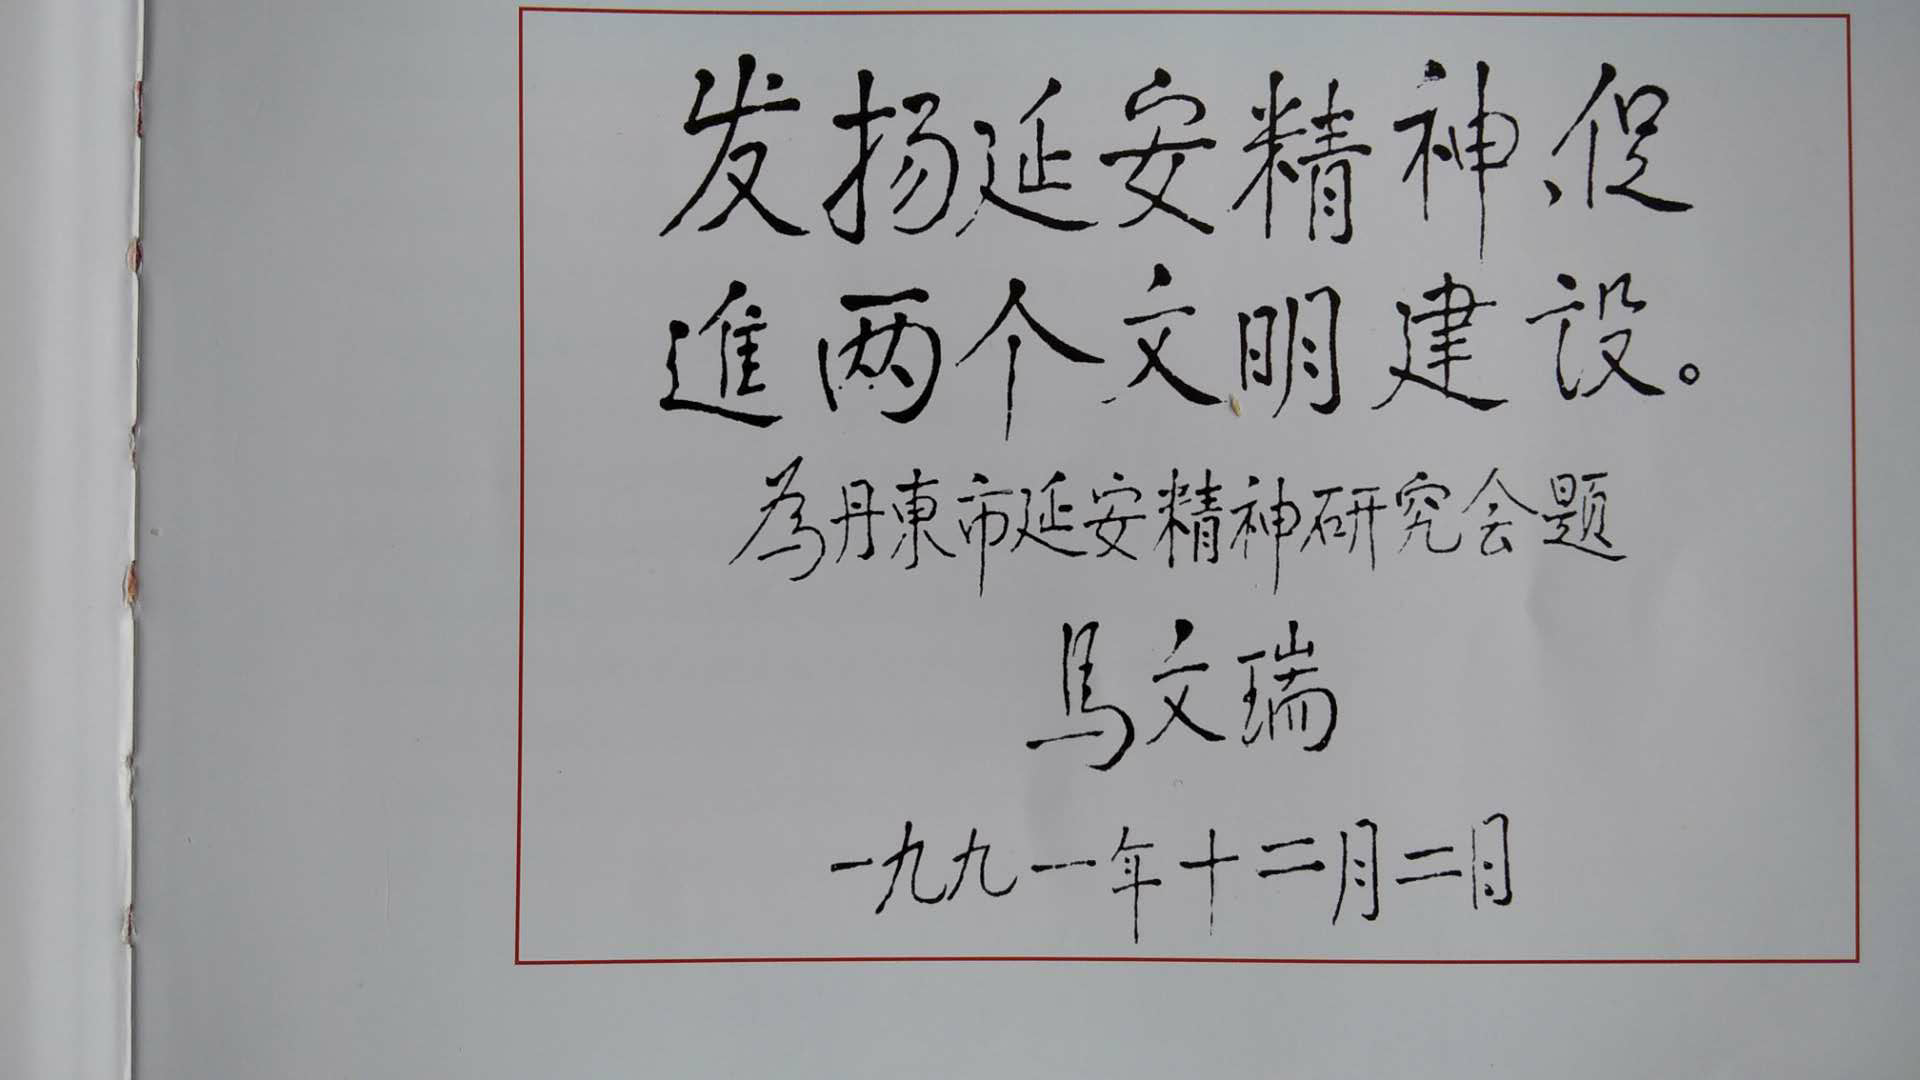 发扬延安精神、促
進两个文明建设。
為丹東市延安精神研究会题
馬文瑞
一九九一年十二月二日